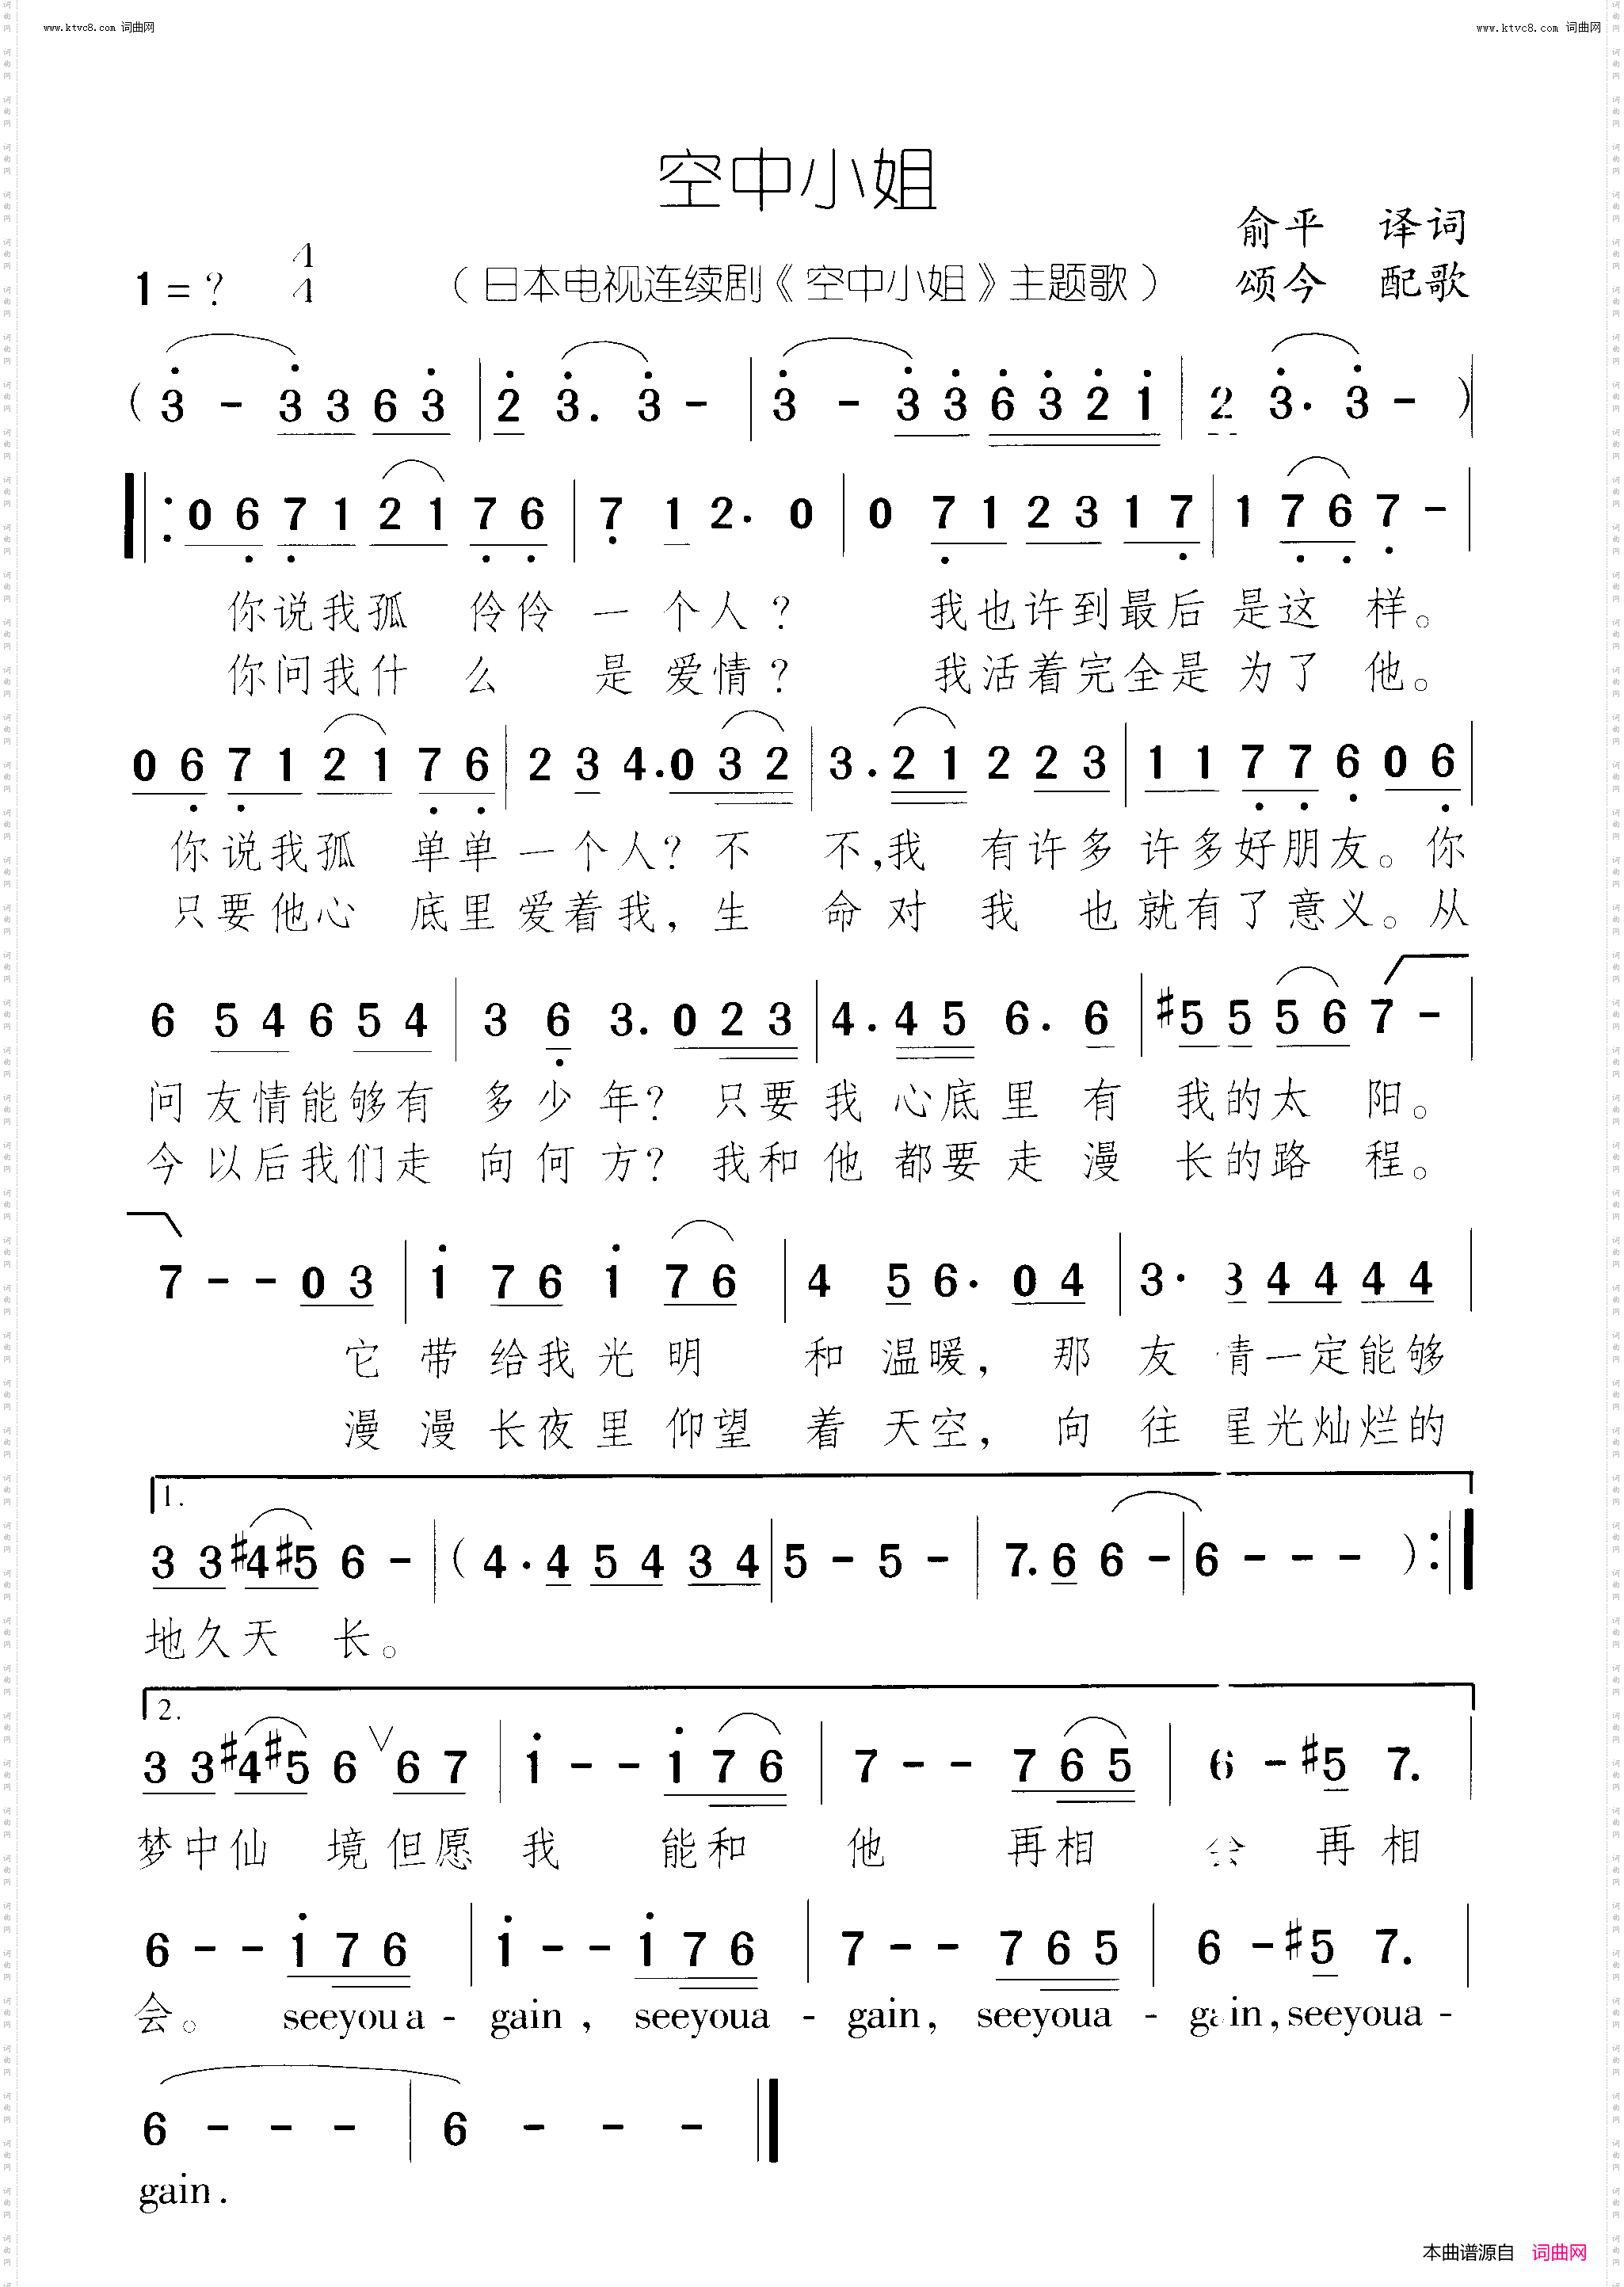 www.ktvc8.com 词曲网 www.ktvc8.com 词曲网
空中小姐
俞平 译词
1=? 4/4 (日本电视连续剧《空中小姐》主题歌) 颂今 配歌
(3 - 3 3 6 3 | 2 3. 3 - | 3 - 3 3 6 3 2 1 | 2 3. 3 - )
0 6 7 1 2 1 7 6 | 7 1 2. 0 | 0 7 1 2 3 1 7 | 1 7 6 7 - |
你说我孤 伶伶 一 个人? 我也许到最后 是这 样。
你问我什 么 是 爱情? 我活着完全是 为了 他。
0 6 7 1 2 1 7 6 | 2 3 4. 0 3 2 | 3. 2 1 2 2 3 | 1 1 7 7 6 0 6 |
你说我孤 单单一个人? 不 不,我 有许多 许多好朋友。你
只要他心 底里爱着我, 生 命对 我 也 就有了意义。从
6 5 4 6 5 4 | 3 6 3. 0 2 3 | 4. 4 5 6. 6 | #5 5 5 6 7 - |
问 友情能够有 多少年? 只要我 心底里 有 我的太 阳。
今 以后我们走 向何方? 我和他 都要走 漫 长的路 程。
7 - - 0 3 | 1 7 6 1 7 6 | 4 5 6. 0 4 | 3. 3 4 4 4 4 |
它 带 给我光 明 和 温暖, 那 友 情一定能够
漫 漫 长夜里 仰望 着 天空, 向 往 星光灿烂的
1.
3 3 #4 #5 6 - | (4. 4 5 4 3 4 | 5 - 5 - | 7. 6 6 - | 6 - - - ) :|
地久天 长。
2.
3 3 #4 #5 6 ∨ 6 7 | 1 - - 1 7 6 | 7 - - 7 6 5 | 6 - #5 7. |
梦中仙 境但愿 我 能和 他 再相 会 再相
6 - - 1 7 6 | 1 - - 1 7 6 | 7 - - 7 6 5 | 6 - #5 7. |
会。 seeyou a - gain , seeyoua - gain, seeyoua - gain, seeyoua -
6 - - - | 6 - - - ||
gain .
本曲谱源自 词曲网